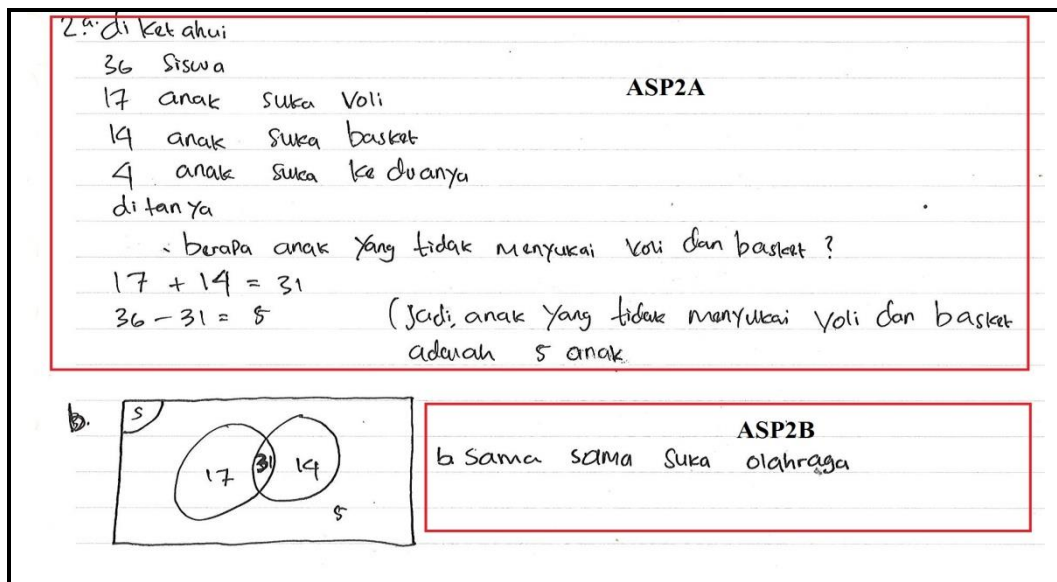 2.a. diketahui
36 Siswa
ASP2A
17 anak suka Voli
14 anak suka basket
4 anak suka keduanya
ditanya
. berapa anak yang tidak menyukai voli dan basket ?
17 + 14 = 31
36 - 31 = 5 (Jadi, anak yang tidak menyukai voli dan basket
adalah 5 anak
b. S
17 31 14
5
ASP2B
b. Sama sama suka olahraga